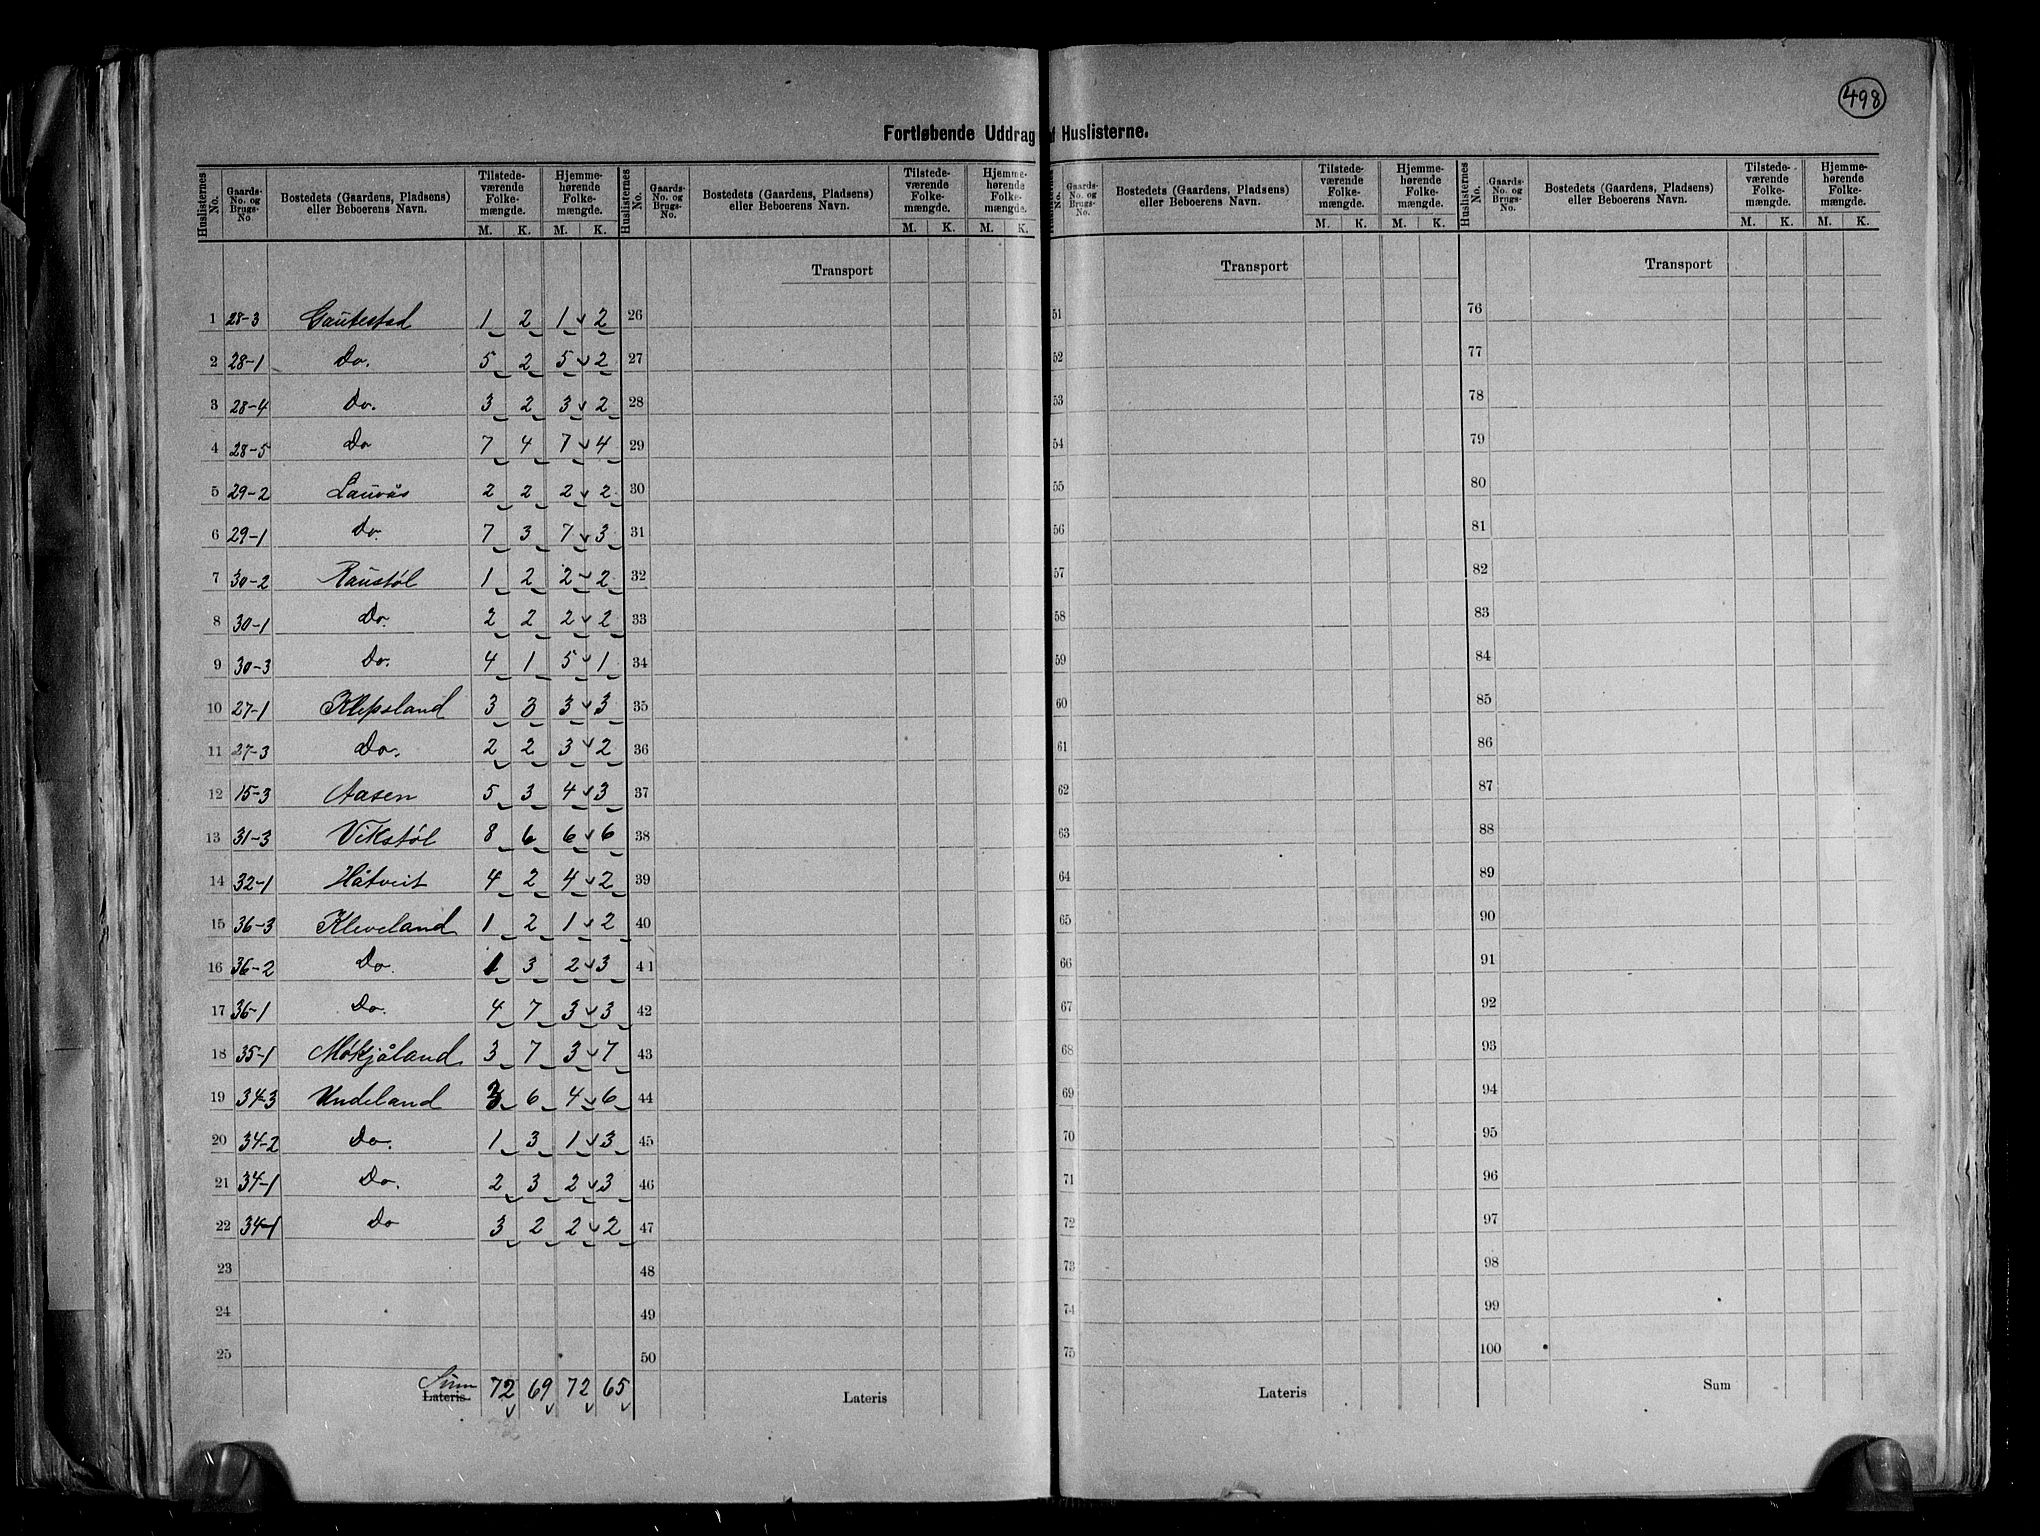 498
Fortløbende Uddrag af Huslisterne.
Huslisternes No. | Gaards-No. og Brugs-No | Bostedets (Gaardens, Pladsens) eller Beboerens Navn. | Tilstedeværende Folkemængde. M. K. | Hjemmehørende Folkemængde. M. K.
Huslisternes No. | Gaards-No. og Brugs-No. | Bostedets (Gaardens, Pladsens) eller Beboerens Navn. | Tilstedeværende Folkemængde. M. K. | Hjemmehørende Folkemængde. M. K.
Gaards-No. og Brugs-No. | Bostedets (Gaardens, Pladsens) eller Beboerens Navn. | Tilstedeværende Folkemængde. M. K. | Hjemmehørende Folkemængde. M. K.
Huslisternes No. | Gaards-No. og Brugs-No. | Bostedets (Gaardens, Pladsens) eller Beboerens Navn. | Tilstedeværende Folkemængde. M. K. | Hjemmehørende Folkemængde. M. K.
Transport Transport Transport
1 28-3 Gautestad 1 2 1 2 26 51 76
2 28-1 Do. 5 2 5 2 27 52 77
3 28-4 Do. 3 2 3 2 28 53 78
4 28-5 Do 7 4 7 4 29 54 79
5 29-2 Lauvås 2 2 2 2 30 55 80
6 29-1 Do. 7 3 7 3 31 56 81
7 30-2 Raustøl 1 2 2 2 32 57 82
8 30-1 Do. 2 2 2 2 33 58 83
9 30-3 Do. 4 1 5 1 34 59 84
10 27-1 Klepsland 3 3 3 3 35 60 85
11 27-3 Do. 2 2 3 2 36 61 86
12 15-3 Aasen 5 3 4 3 37 62 87
13 31-3 Vikstøl 8 6 6 6 38 63 88
14 32-1 Håtveit 4 2 4 2 39 64 89
15 36-3 Kleveland 1 2 1 2 40 65 90
16 36-2 Do. 1 3 2 3 41 66 91
17 36-1 Do. 4 7 3 3 42 67 92
18 35-1 Møkjåland 3 7 3 7 43 68 93
19 34-3 Undeland 3 6 4 6 44 69 94
20 34-2 Do. 1 3 1 3 45 70 95
21 34-1 Do. 2 3 2 3 46 71 96
22 34-1 Do 3 2 2 2 47 72 97
23 48 73 98
24 49 74 99
25 50 75 100
Sum Lateris 72 69 72 65 Lateris Lateris Sum